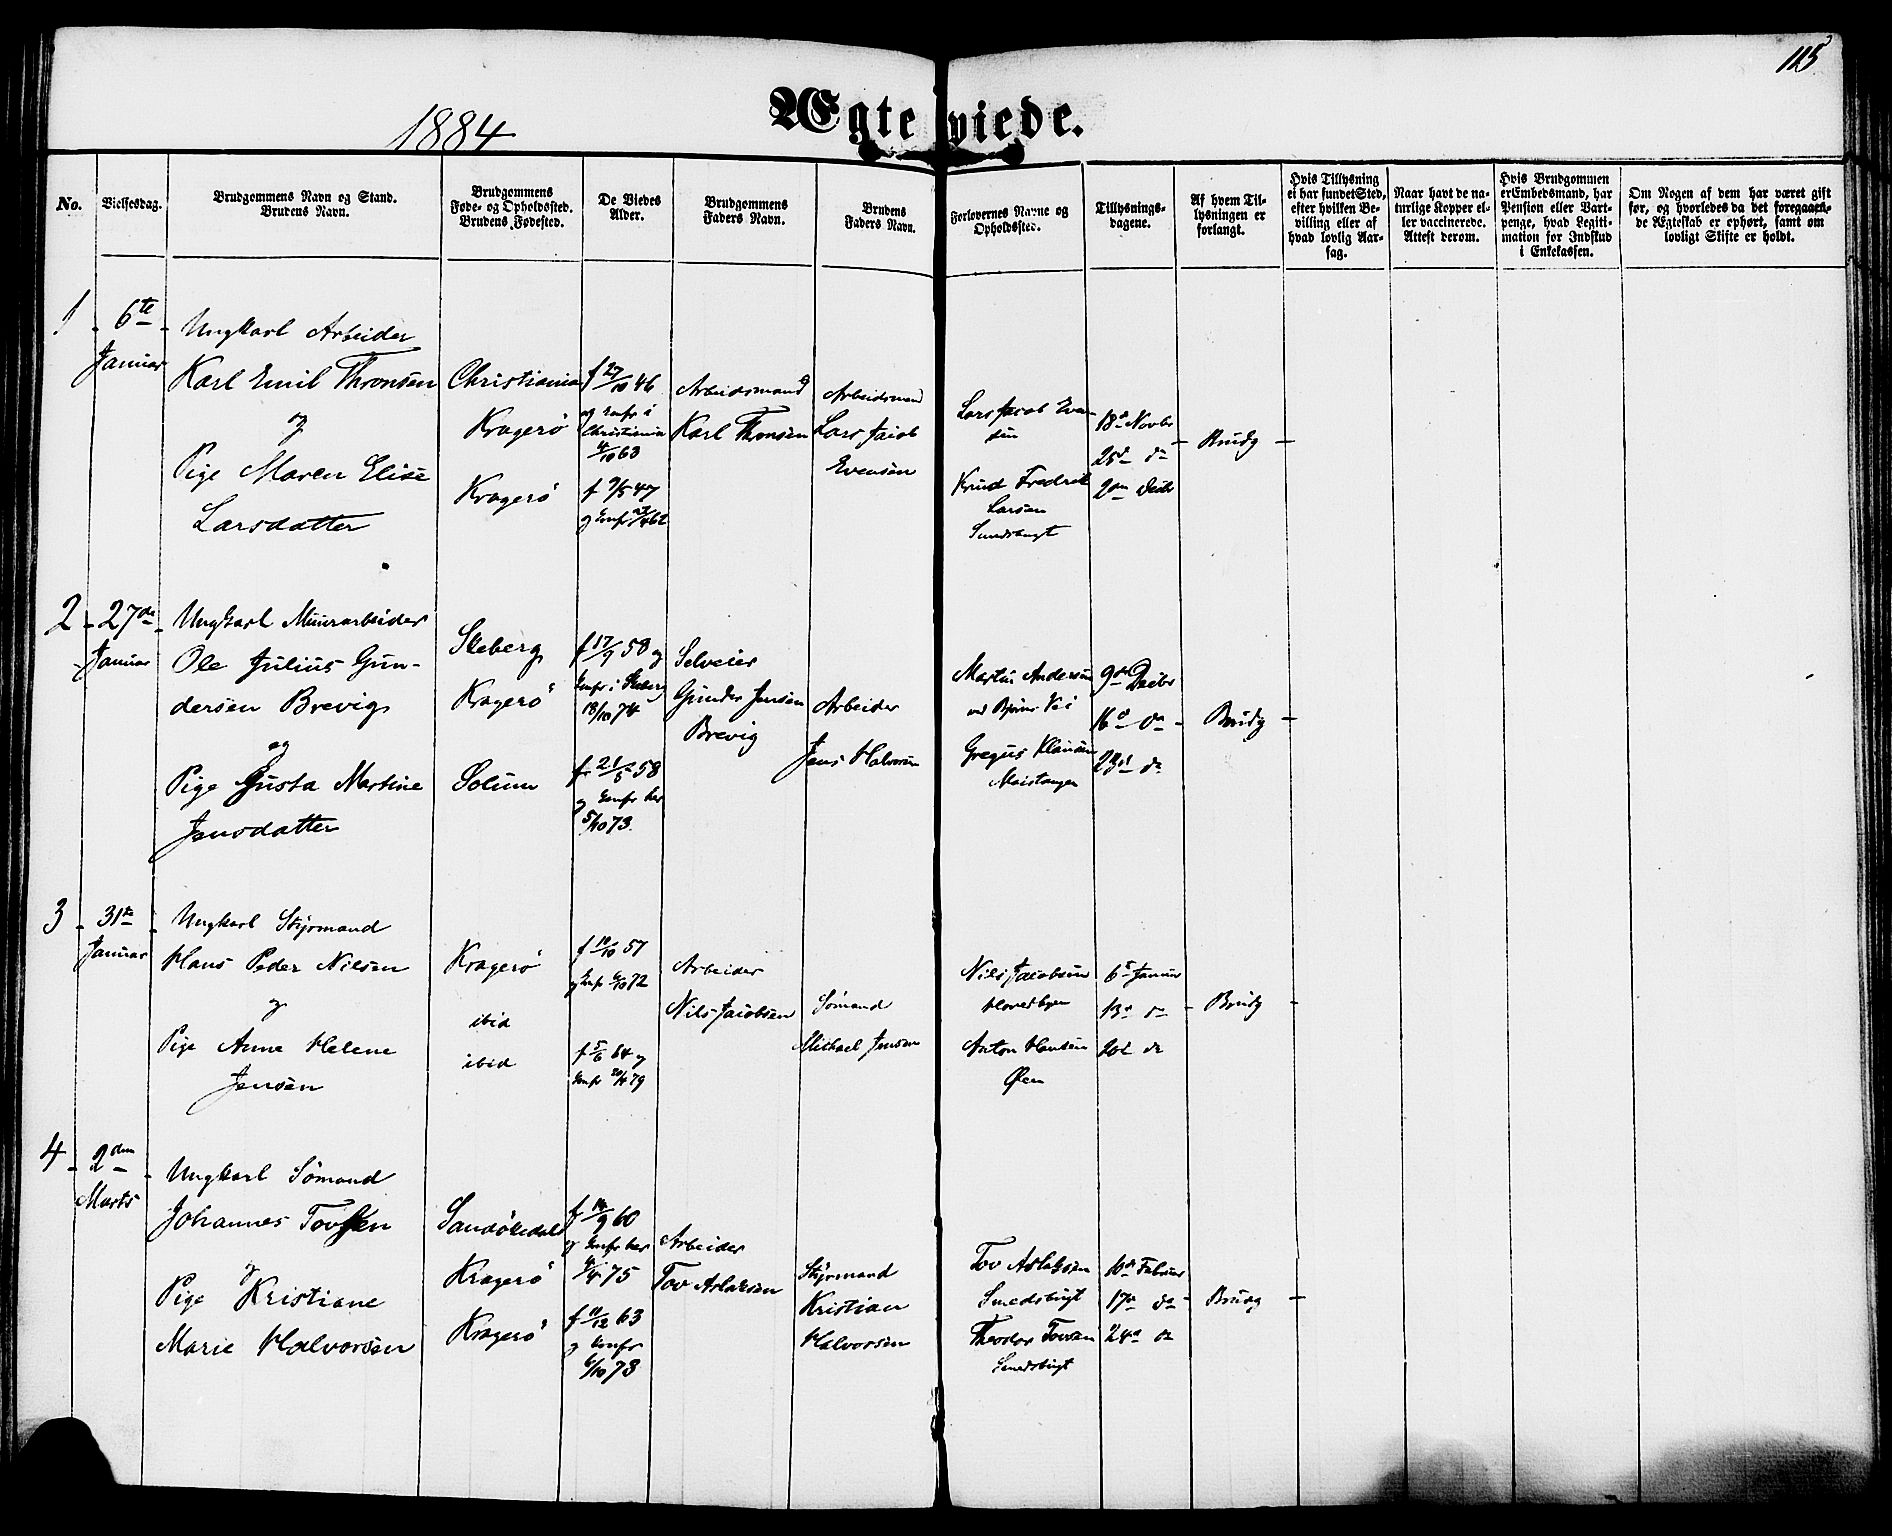 115
1884
Ægteviede.
No.
Vielsesdag.
Brudgommens Navn og Stand.
Brudens Navn.
Brudgommens
Føde- og Opholdssted.
Brudens Fødested.
De Viedes
Alder.
Brudgommens
Faders Navn.
Brudens
Faders Navn.
Forlovernes Navne og
Opholdssted.
Tillysnings-
dagene.
Af hvem Til-
lysningen er
forlangt.
Hvis Tillysning
ei har fundet Sted,
efter hvilken Be-
villing eller af
hvad lovlig Aar-
sag.
Naar havt de na-
turlige Kopper el-
ler vaccinerede.
Attest derom.
Hvis Brudgommen
er Embedsmand, har
Pension eller Vart-
penge, hvad Legiti-
mation for Indskud
i Enkekassen.
Om Nogen af dem har været gift
før, og hvorledes da det foregaaen-
de Ægteskab er ophørt, samt om
lovligt Skifte er holdt.
1
6te
Januar
Ungkarl Arbeider
Karl Emil Thronsen
og
Pige Maren Elise
Larsdatter
Christiania
Kragerö
Kragerö
f 27/10 46
og Confr i
Christiania
4/10 63
f 9/5 47
og Confr 27/4 62
Arbeidsmand
Karl Thronsen
Arbeidsmand
Lars Jacob
Evensen
Lars Jacob Even-
sen
Knud Fredrik
Larsen
Smedsbugt
18d Novbr
25d da
2den Decbr
Brudg
2
27de
Januar
Ungkarl Muurarbeider
Ole Julius Gun-
dersen Brevig
og
Pige Gusta Martine
Jensdatter
Skeberg
Kragerö
Solum
f 17/9 58 og
Confr i Skeberg
18/10 74
f 21/5 58
og Confr her
5/10 73.
Selveier
Gunder Jensen
Brevig
Arbeider
Jens Halvorsen
Martin Andersen
ved Bjørns Vei
Gregus Klausen
9de Decbr
16d da
23d da
Brudg
3
31te
Januar
Ungkarl Styrmand
Hans Peder Nilsen
og
Pige Anne Helene
Jensen
Kragerö
ibid
ibid
f 10/10 57
og Confr 6/10 72
f 5/6 64 og
Confr 20/4 79
Arbeider
Nils Jacobsen
Sömand
Michael Jensen
Nils Jacobsen
Anton Hansen
Øen
6t Januar
13d da
20d da
Brudg
4
2den
Marts
Ungkarl Sömand
Johannes Tovsen
og
Pige Kristiane
Marie Halvorsen
Sandökedal
Kragerö
Kragerö
f 14/9 60
og Confr her
4/4 75
f 11/12 63
og Confr
6/10 73
Arbeider
Tov Aslaksen
Styrmand
Kristian
Halvorsen
Tov Aslaksen
Smedsbugt
Theodor Tovsen
Smedsbugt
10d Februar
17d da
24d da
Brudg